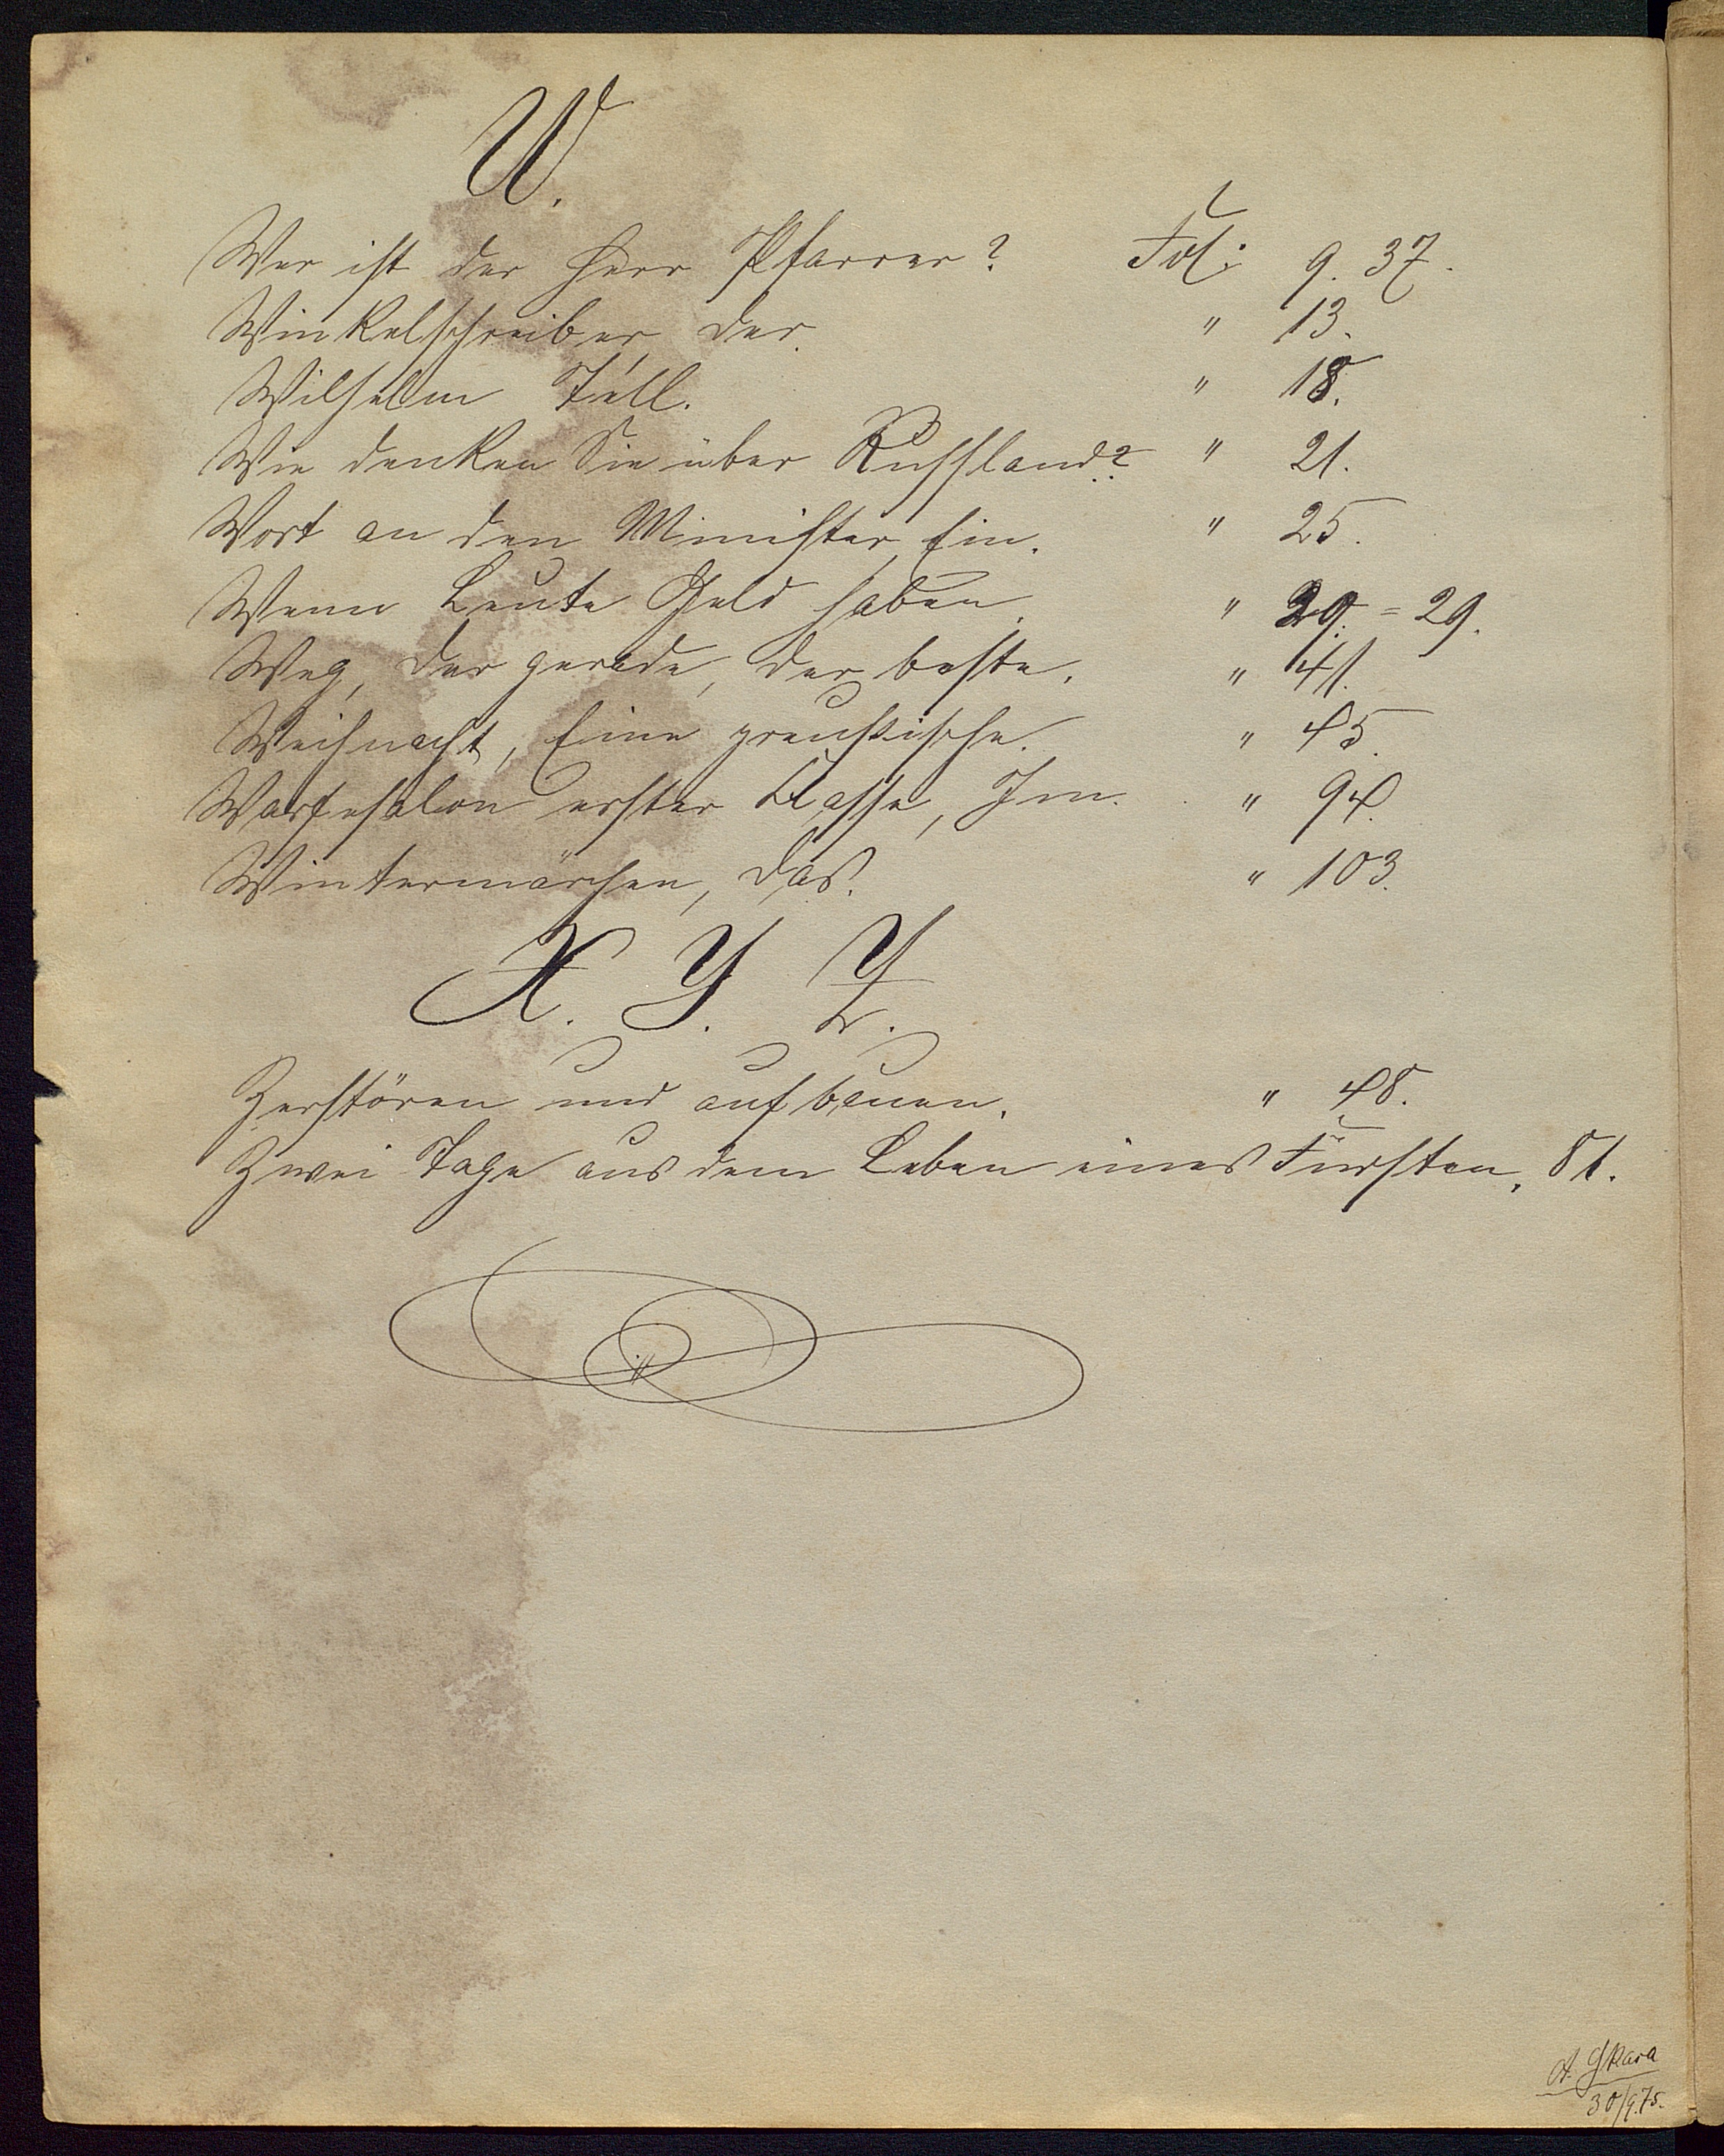 W.
Wer ist der Herr Pfarrer? Fol: 9. 37.
Winkelschreiber, der. " 13.
Wilhelm Tell. " 18.
Wie denken Sie über Russland? " 21.
Wort an den Minister, Ein. " 25.
Wenn Leute Geld haben. " 29. = 29.
Weg, der gerade, der beste. " 41.
Weihnacht, Eine preußische. " 45.
Wartesalon erster Klasse, Im. " 94.
Wintermärchen, das. " 103.
X. Y. Z.
Zerstören und aufbauen. " 48.
Zwei Tage aus dem Leben eines Fürsten. 81.
30/9.75.